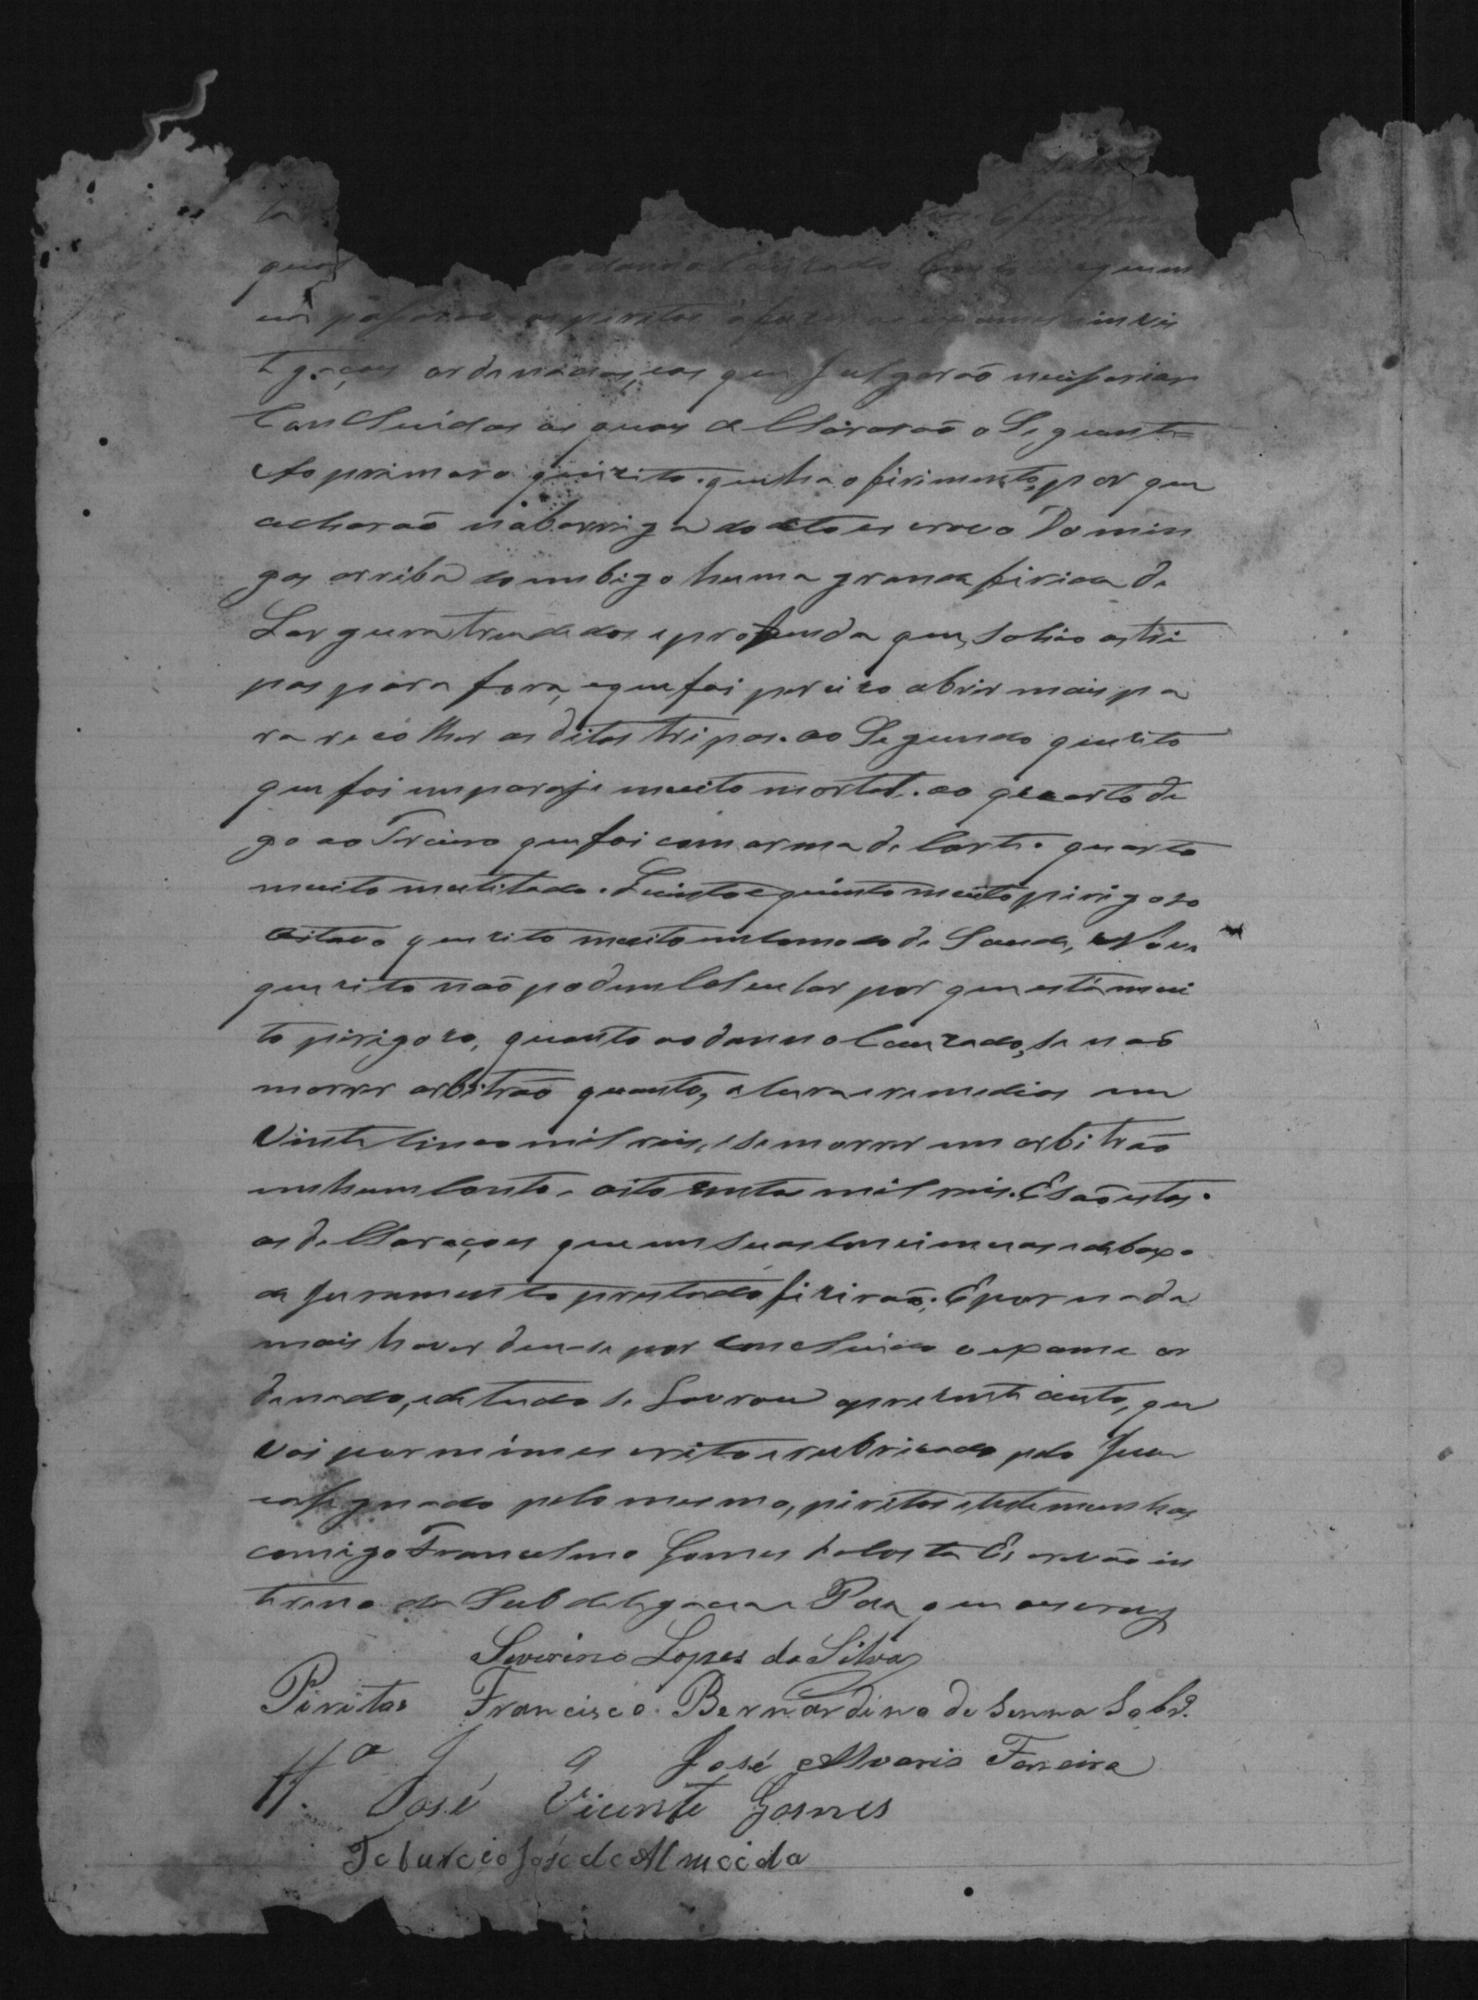 ta
quaes o danno Cauzado. Em consequencia
em passarão os peritos a fazer os exames einvis
tigações ordenadas, e as que julgarão necessarias
Concluidas as quaes declárarão o Seguinte=
Ao primeiro quizito. que ha o firimento, por que
acharão na barriga do dito escravo Domin
gos arriba do umbigo huma grande firida de
Largura tres dedos e profunda que, sahio as tri
pas para fora, e que foi precizo abrir mais pa
ra recolher as ditas tripas. ao Segundo quizito
que foi em paraje muito mortal. ao quarto di
go ao Treceiro que foi com arma de Corte. quarto
muito mutilado. Quinto muito pirigozo
Oitavo quizito muito incomodo de Saude, Nove
quizito não podem Calcular por que está mui
to pirigozo, quanto ao danno Cauzado, se não
morrer arbitrão quanto, a Cura e remedios em
Vinte Cinco mil reis, e se morrer em arbitrão
em hum Conto e oito centos mil reis. E são estas.
as declarações que em Suas Conciencias e debaxo
de juramento prestado fizirão. E por nada
mais haver deu-se por concluido o exame or
denado, e de tudo se Lavrou o prezente auto, que
vai por mim escrito e rubricado pelo Juis
e assignado pelo mesmo, piritos e testemunhas
comigo Francelino Gomes da Costa Escrivão in
tereno da Subdelegacia e Paz, que o escrevy
Severino Lopes da Silva
Piritos Francisco Bernardino de Senna Sobr.º
José Alvaris Ferreira
Tt.ª José Vicente Gomes
Teburcio José de Almeida